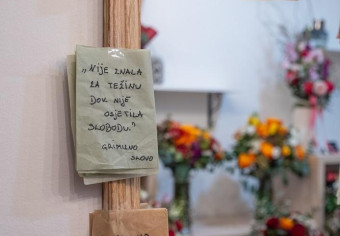 „NIJE ZNALA
ZA TEŽINU
DOK NIJE
OSJETILA
SLOBODU."
GRIMIZNO
SLOVO